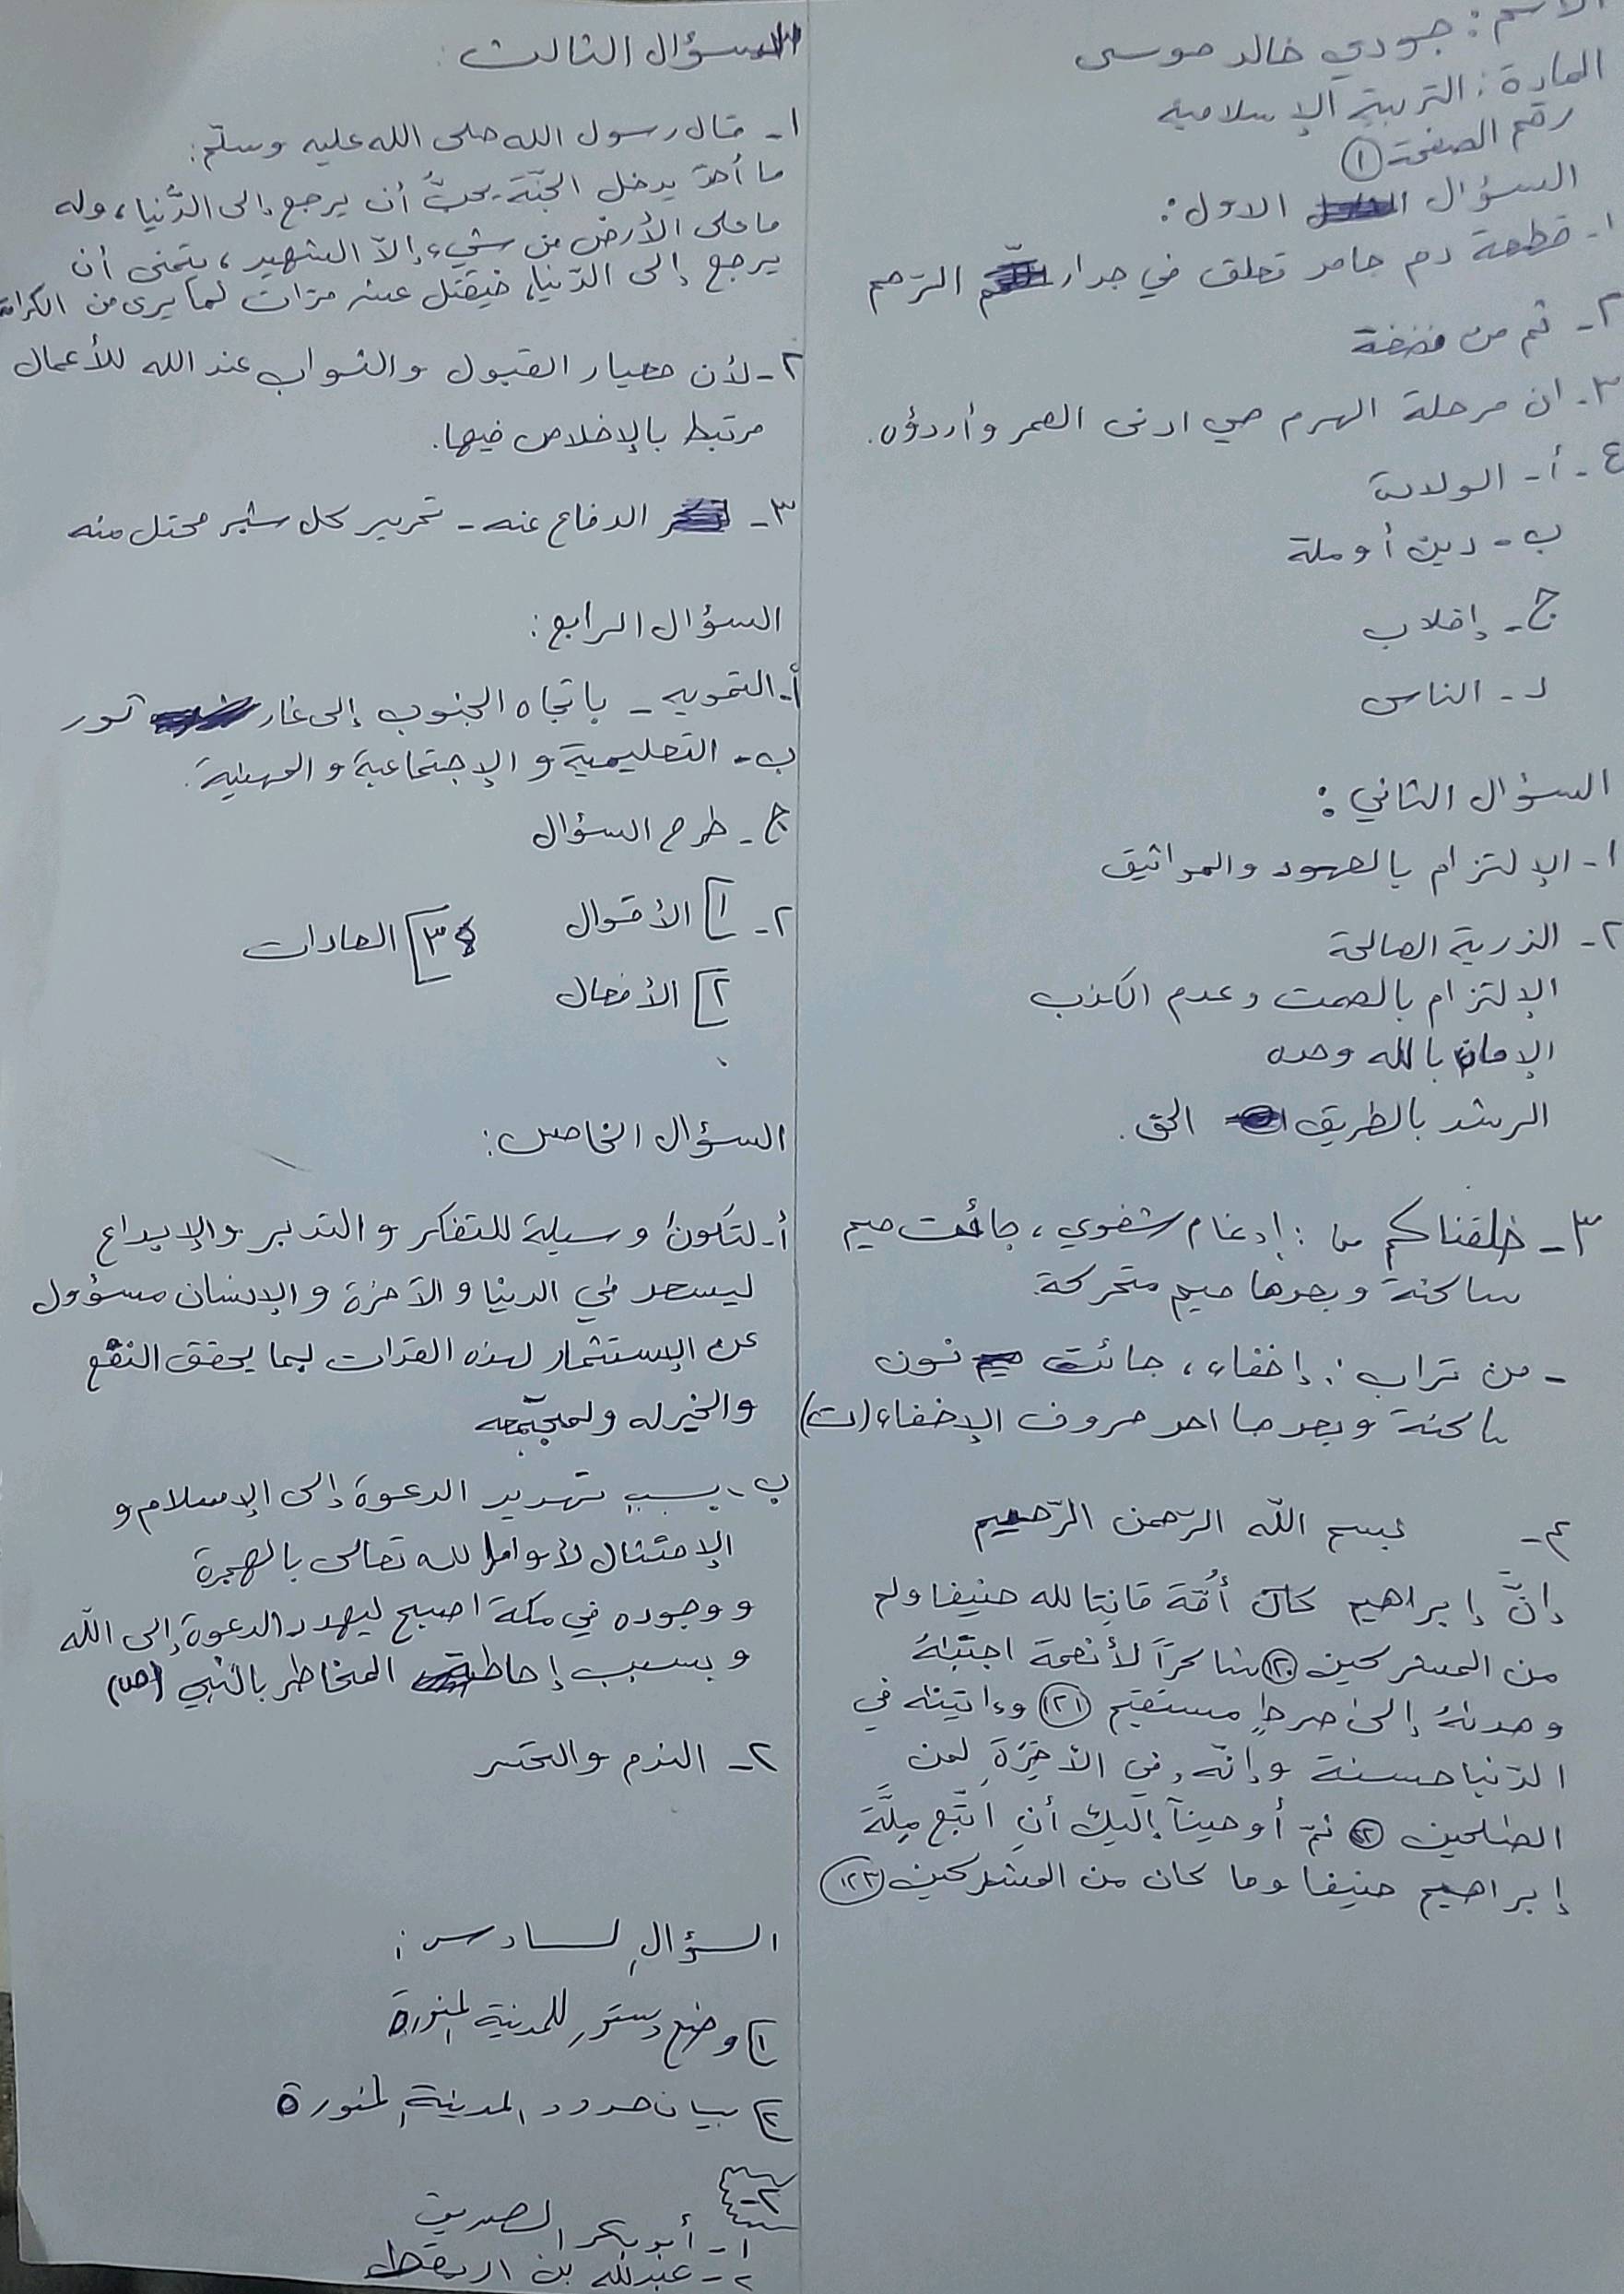 الاسم: جودي خالد موسى
المادة: التربية الإسلامية
رقم الصفحة ①
السؤال الاول:
١- قطعة دم جامد تعلق في جدار الرّحم
٢- ثم من مضغة
٣- ان مرحلة الهرم هي ادنى العمر وأردؤه.
٤- أ- الولادة
ب- دين أو ملة
ج- إقلاب
د- الناس
السؤال الثاني:
١- الإلتزام بالعهود والمواثيق
٢- الذرية الصالحة
الإلتزام بالصمت وعدم الكذب
الإمان بالله وحده
الرشد بالطريق الحق.
٣- خلقناكم من: إدغام شفوي، جائت ميم
ساكنة وبعدها ميم متحركة.
- من تراب: إخفاء، جائت نون
ساكنة وبعدها احد حروف الإخفاء (ت)
٤- بسم الله الرّحمن الرّحيم
إنّ إبراهيم كان أُمّة قانتا لله حنيفا ولم
من المشركين (١٢٠) شاكراً لأنعمة اجتبٰهُ
وهدىٰهُ إلىٰ صرطٍ مستقيم (١٢١) وءاتينٰه في
الدّنيا حسنة وإنّه، في الأخِرَةِ لمن
الصّٰلحين (١٢٢) ثمّ أوحينآ إليك أنِ اتّبع مِلَّةَ
إبراهيم حنيفا وما كان من المشركين (١٢٣)
السؤال الثالث:
١- قال رسول الله صلى الله عليه وسلّم:
ما أحدٌ يدخل الجنّة يحبُّ أن يرجع إلى الدُّنيا، وله
ما على الأرض من شيء إلّا الشهيد، يتمنى أن
يرجع إلى الدّنيا، فيقتل عشر مرّات لما يرى من الكرامة
٢- لأن معيار القبول والثواب عند الله للأعمال
مرتبط بالإخلاص فيها.
٣- الدفاع عنه - تحرير كل شبر محتل منه
السؤال الرابع:
أ- التمويه - باتجاه الجنوب إلى غار ثور
ب- التعليمية و الإجتماعية و المهنية.
ج- طرح السؤال
٢- ١] الأقوال ٣] العادات
٢] الأفعال
السؤال الخامس:
أ- لتكون وسيلة للتفكر و التدبر والإبداع
ليسعد في الدنيا و الآخرة و الإنسان مسؤول
عن الإستثمار لهذه القدرات بما يحقق النفع
والخير له ولمجتمعه
ب- بسبب تهديد الدعوة إلى الإسلام و
الإمتثال لأوامر الله تعالى بالهجرة
ووجوده في مكة اصبح ليهدد الدعوة إلى الله
وبسبب إحاطة المخاطر بالنبي (ص)
٢- الندم والتحسر
السؤال السادس:
١] وضع دستور للمدينة المنورة
٢] بيان حدود المدينة المنورة
٢-
١- أبو بكر الصديق
٢- عبدلله بن اريقط